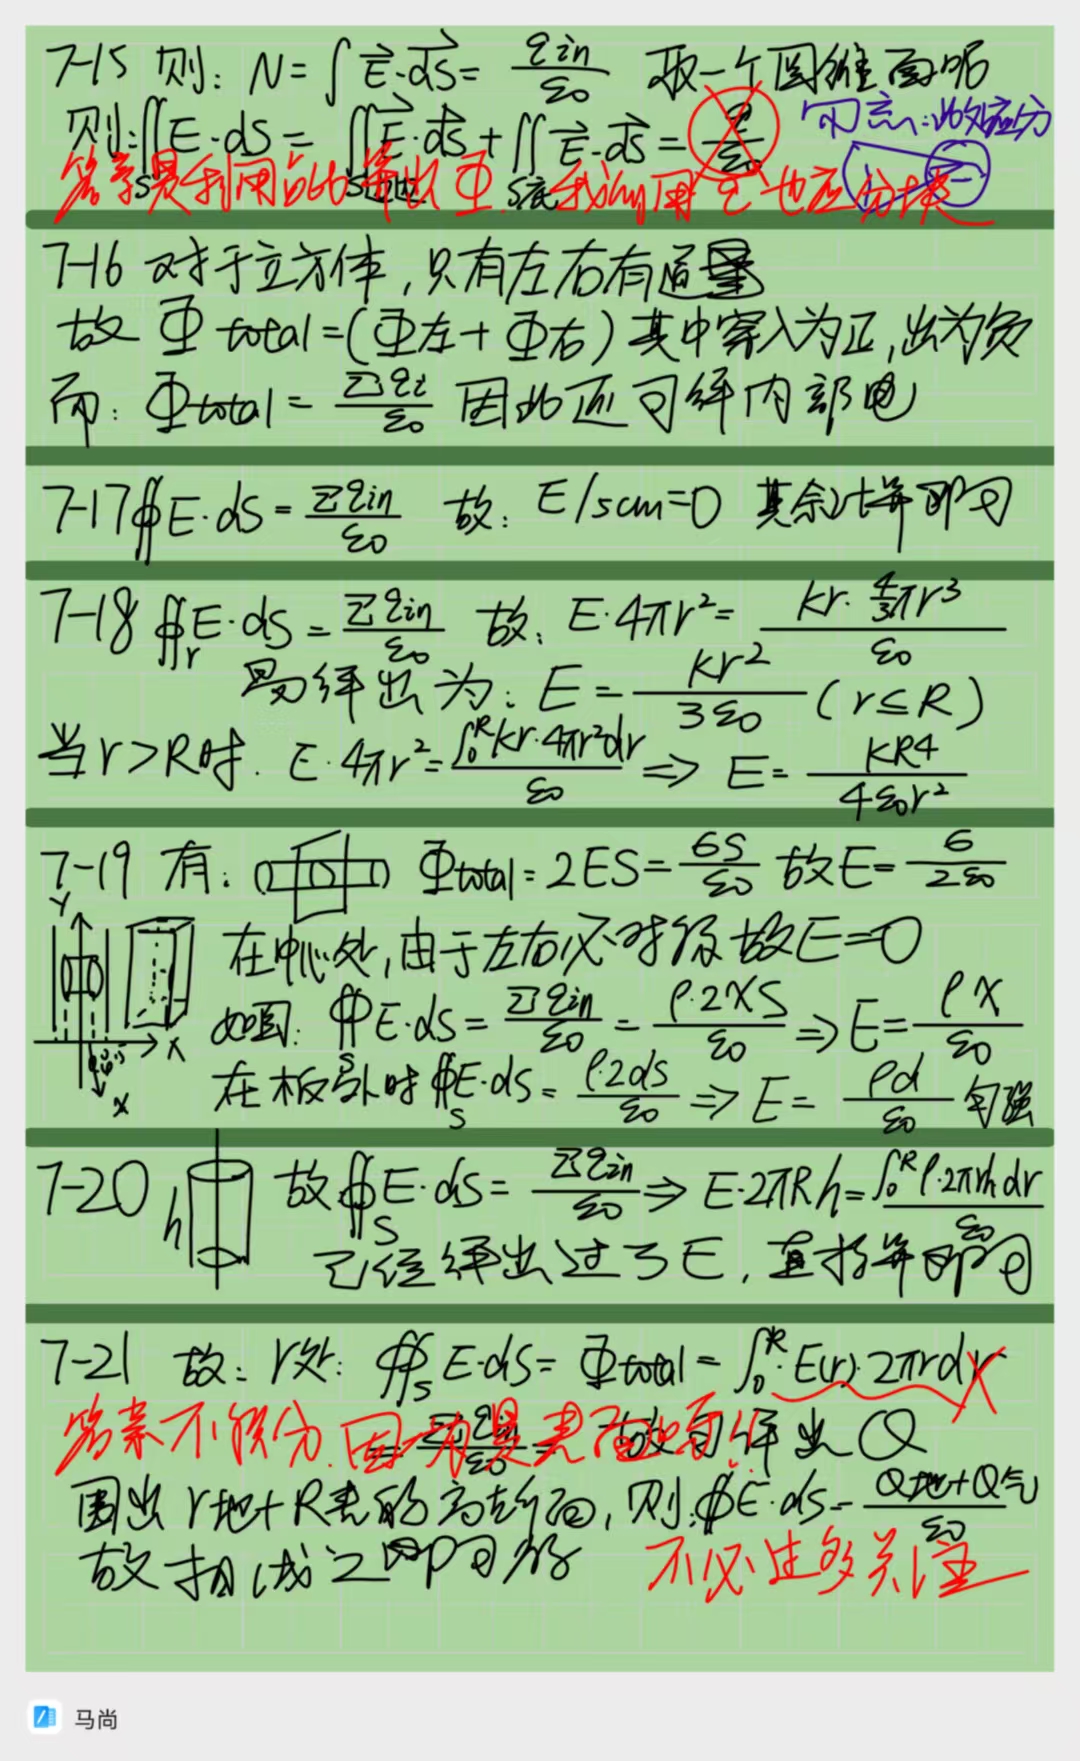 7-15 则: N=∫E⃗·dS⃗= qin/ε0 取一个圆锥面呢
则:∬E·dS= ∬E⃗·dS⃗+∬E⃗·dS⃗= q/ε0 可知:此处应分
S S底
答案是利用 Φ 我们用它也应分块
7-16 对于立方体,只有左右有通量
故 Φtotal=(Φ左+Φ右)其中穿入为正,出为负
而: Φtotal= Σqi/ε0 因此还可得内部电
7-17 ∯E·dS= Σqin/ε0 故: E/5cm=0 其余计算即可
7-18 ∯E·dS= Σqin/ε0 故: E·4πr²= kr·4/3πr³/ε0
r
易得出为: E= kr²/3ε0 (r≤R)
当r>R时. E·4πr²= ∫0^R kr·4πr²dr/ε0 ⇒ E= kR4/4ε0r²
7-19 有: Φtotal=2ES= σS/ε0 故E= σ/2ε0
在中心处,由于左右必对称 故E=0
Y
X
X
如图: ∯E·dS= Σqin/ε0 = ρ·2XS/ε0 ⇒E= ρX/ε0
S
在板外时∯E·dS= ρ·2dS/ε0 ⇒ E= ρd/ε0 匀强
S
7-20 h 故∯E·dS= Σqin/ε0 ⇒ E·2πRh= ∫0^R ρ·2πrh dr/ε0
S
已经得出过了E,直接算即可
7-21 故: r处: ∯E·dS= Φtotal= ∫0^R E(r)·2πrdr
S
答案不积分.因为是表面
= Σqin/ε0 故可得出Q
围出r地+R表的高斯面,则:∯E·dS= Q地+Q气/ε0
故相减之即可解 不必过多关注
马尚